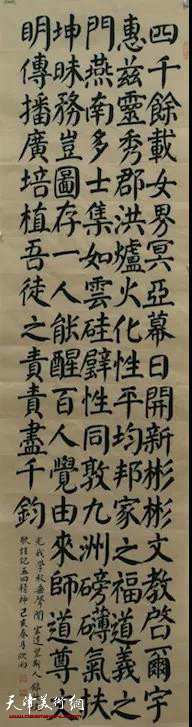 四千餘載女界冥亞幕日開新彬彬文教啓爾宇
惠茲靈秀郡洪爐火化性平均邦家之福道義之
門燕南多士集如雲硅璧性同敦九洲磅礴氣扶
坤昧務豈圖存一人能醒百人覺由來師道尊
明傳播廣培植吾徒之責責盡千鈞
天津美術網